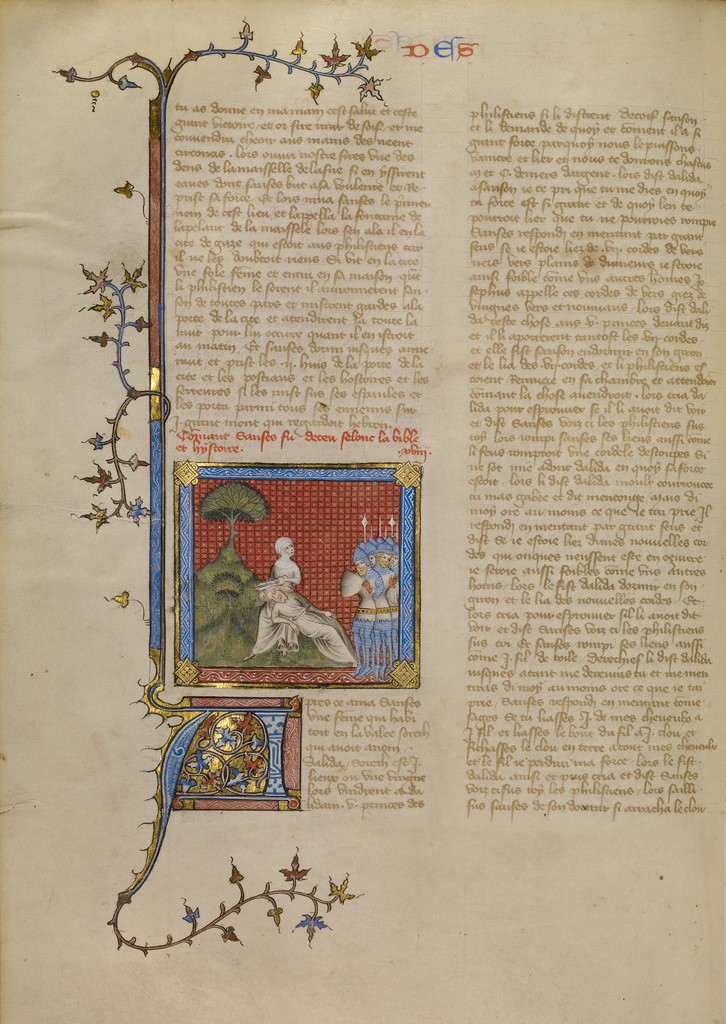 DES
tu as donne en ma main cest salut et ceste
grant victoire et or sire muir de soif et me
convendra cheoir aus mains des neent
circoncis. lors ouvri nostre sires une des
dens de la maisselle de lasne si en yssirent
eaues dont sanses but a sa voulente et re
prist sa force. Et lors mua sanses le premier
nom de cest lieu et lappella la fontaine de
lapelant de la maissele lors sen ala il en la
cite de gaze qui estoit aus philistiens car
il ne les doubtoit riens Si vit en la cite
une fole feme et entra en sa maison
li philistien le sorent il avironnerent san
son de toutes pars et mistrent gardes a la
porte de la cite et atendirent la toute la
nuit pour lui occirre quant il en istroit
au matin. Et sanses dormi jusques a mie
nuit et prist les .ii. huis de la porte de la
cite et les postiaus et les
serreures si les mist sus ses espaules et
les porta parmi tous ses ennemis sur
.j. grant mont qui regardoit hebron.
Coment Sanses fu deceu selonc la bible
et hystoire. .xviij.
pres ce ama Sanses
une feme qui habi
toit en la valee soreth
qui avoit a non
dalida Soreth est .j.
lieu ou une vingne
lors vindrent a da
lidam .v. princes des
philistiens si li distrent decoif sanson
et li demande de quoy ce vient il a si
grant force par quoy nous le puissons
vaincre et lier et nous te donrons chascun
M et C. deniers dargent. lors dist dalida
a sanson je te pri que tu me dies en quoy
ta force est si grant et de quoy len te
pourroit lier que tu ne pourroies rompre
Sanses respondi en mentant par grant
sens se je estoie liez de .vij. cordes de vers
ners vers plains de je seroie
aussi foible come uns autres homes Jo
sephus appelle ces cordes de vers
vingnes vers et nouviaus. lors dist dali
da ceste chose aus .v. princes devant diz
et il li aporterent tantost les .vij. cordes
et elle fist sanson endormir en son giron
et le lia des .vij. cordes. et li philistiens es
toient en sa chambre et attendoient
comant la chose avendroit. lors cria da
lida pour esprouver se il li avoit dit voir
et dist Sanses voiz ci les philistiens sus
toy lors rompi sanses ses liens aussi come
li feus romproit une cordele destoupes Si
ne sot mie adont dalida en quoy sa force
estoit. lors li dist dalida moult courroucee
tu mas gabee et dit menconge mais di
moy ore au moins ce que je tai prie Il
respondi en mentant par grant sens et
dist Se je estoie liez dunes nouvelles cor
des qui onques neussent este en oeuvre
je seroie aussi foibles come uns autres
homs. lors le fist dalida dormir en son
giron et le lia des nouvelles cordes. Et
lors cria pour esprouver sil li avoit dit
voir et dist Sanses voiz ci les philistiens
sus toy et Sanses rompi ses liens aussi
come .j. fil de toile. Derechief li dist dalida
jusques a tant me decevras tu et me men
tiras di moy au moins ore ce que je tai
prie. Sanses respondi en mentant come
sages Se tu liasses .j. de mes cheveulx a
.j. fil et liasses le bout du fil a .j. clou et
fichasses le clou en terre atout mes cheveulx
et le fil je perdrai ma force. lors le fist
dalida ainsi et puis cria et dist Sanses
voiz ci sus toy les philistiens. lors sailli
sus sanses de son dormir si arracha le clou